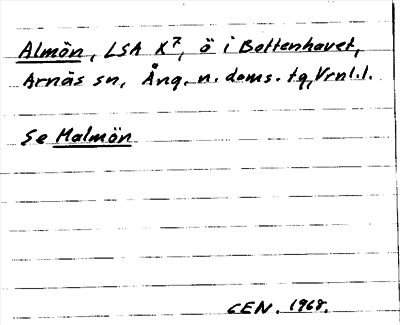 Almön, LSA X7, ö i Bottenhavet,
Arnäs sn, Ång. n. doms. tg, Vrnl.l.
Se Malmön
CEN. 1968.